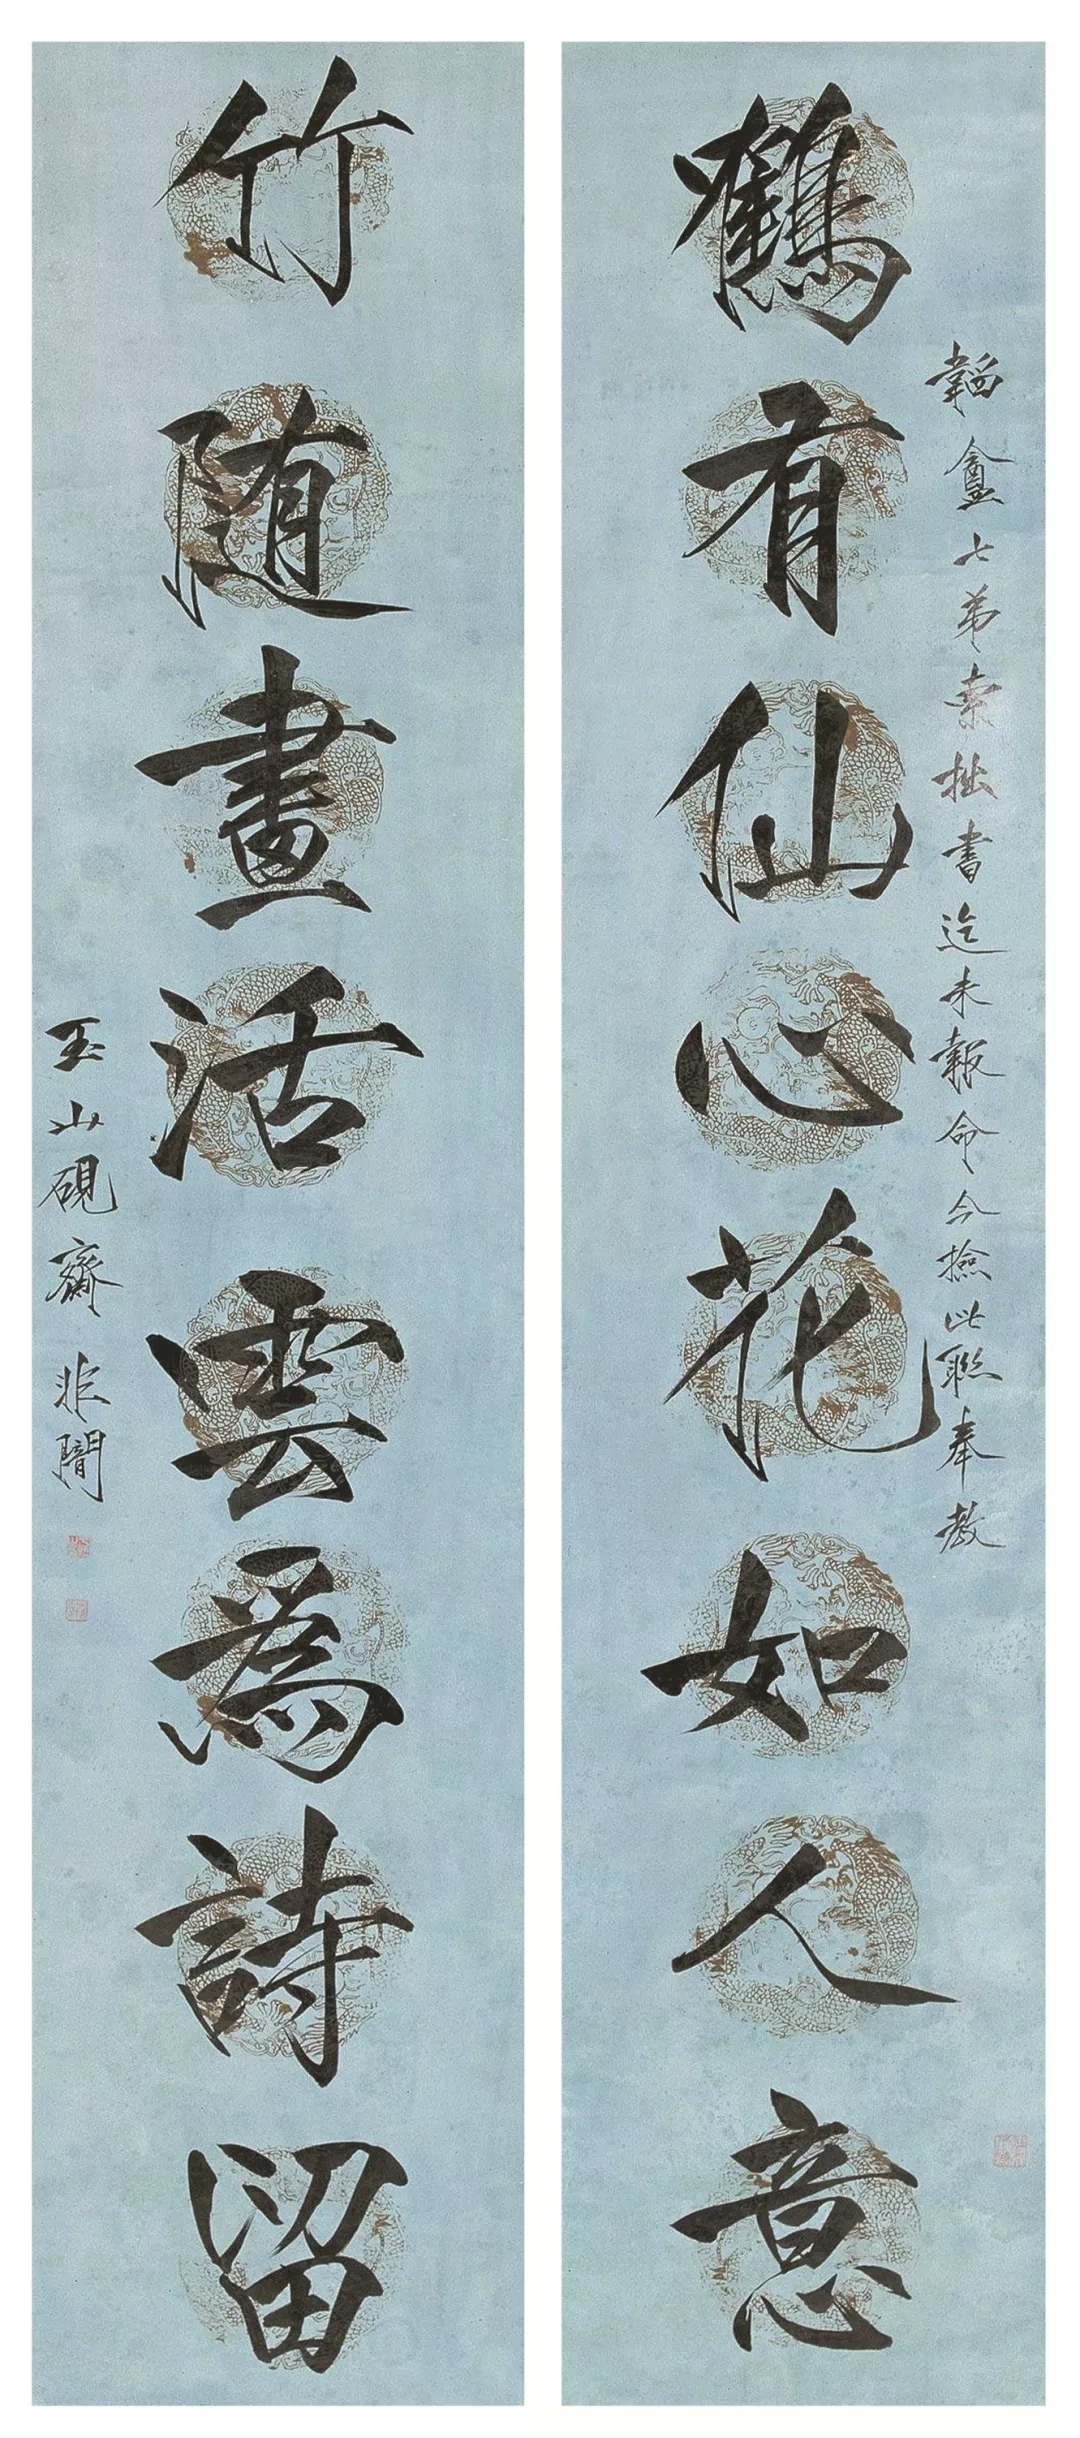 鶴有仙心花如人意
韜盦七弟索拙書迄未報命今撿此聯奉教
竹随畫活雲爲詩留
玉山硯齋非闇